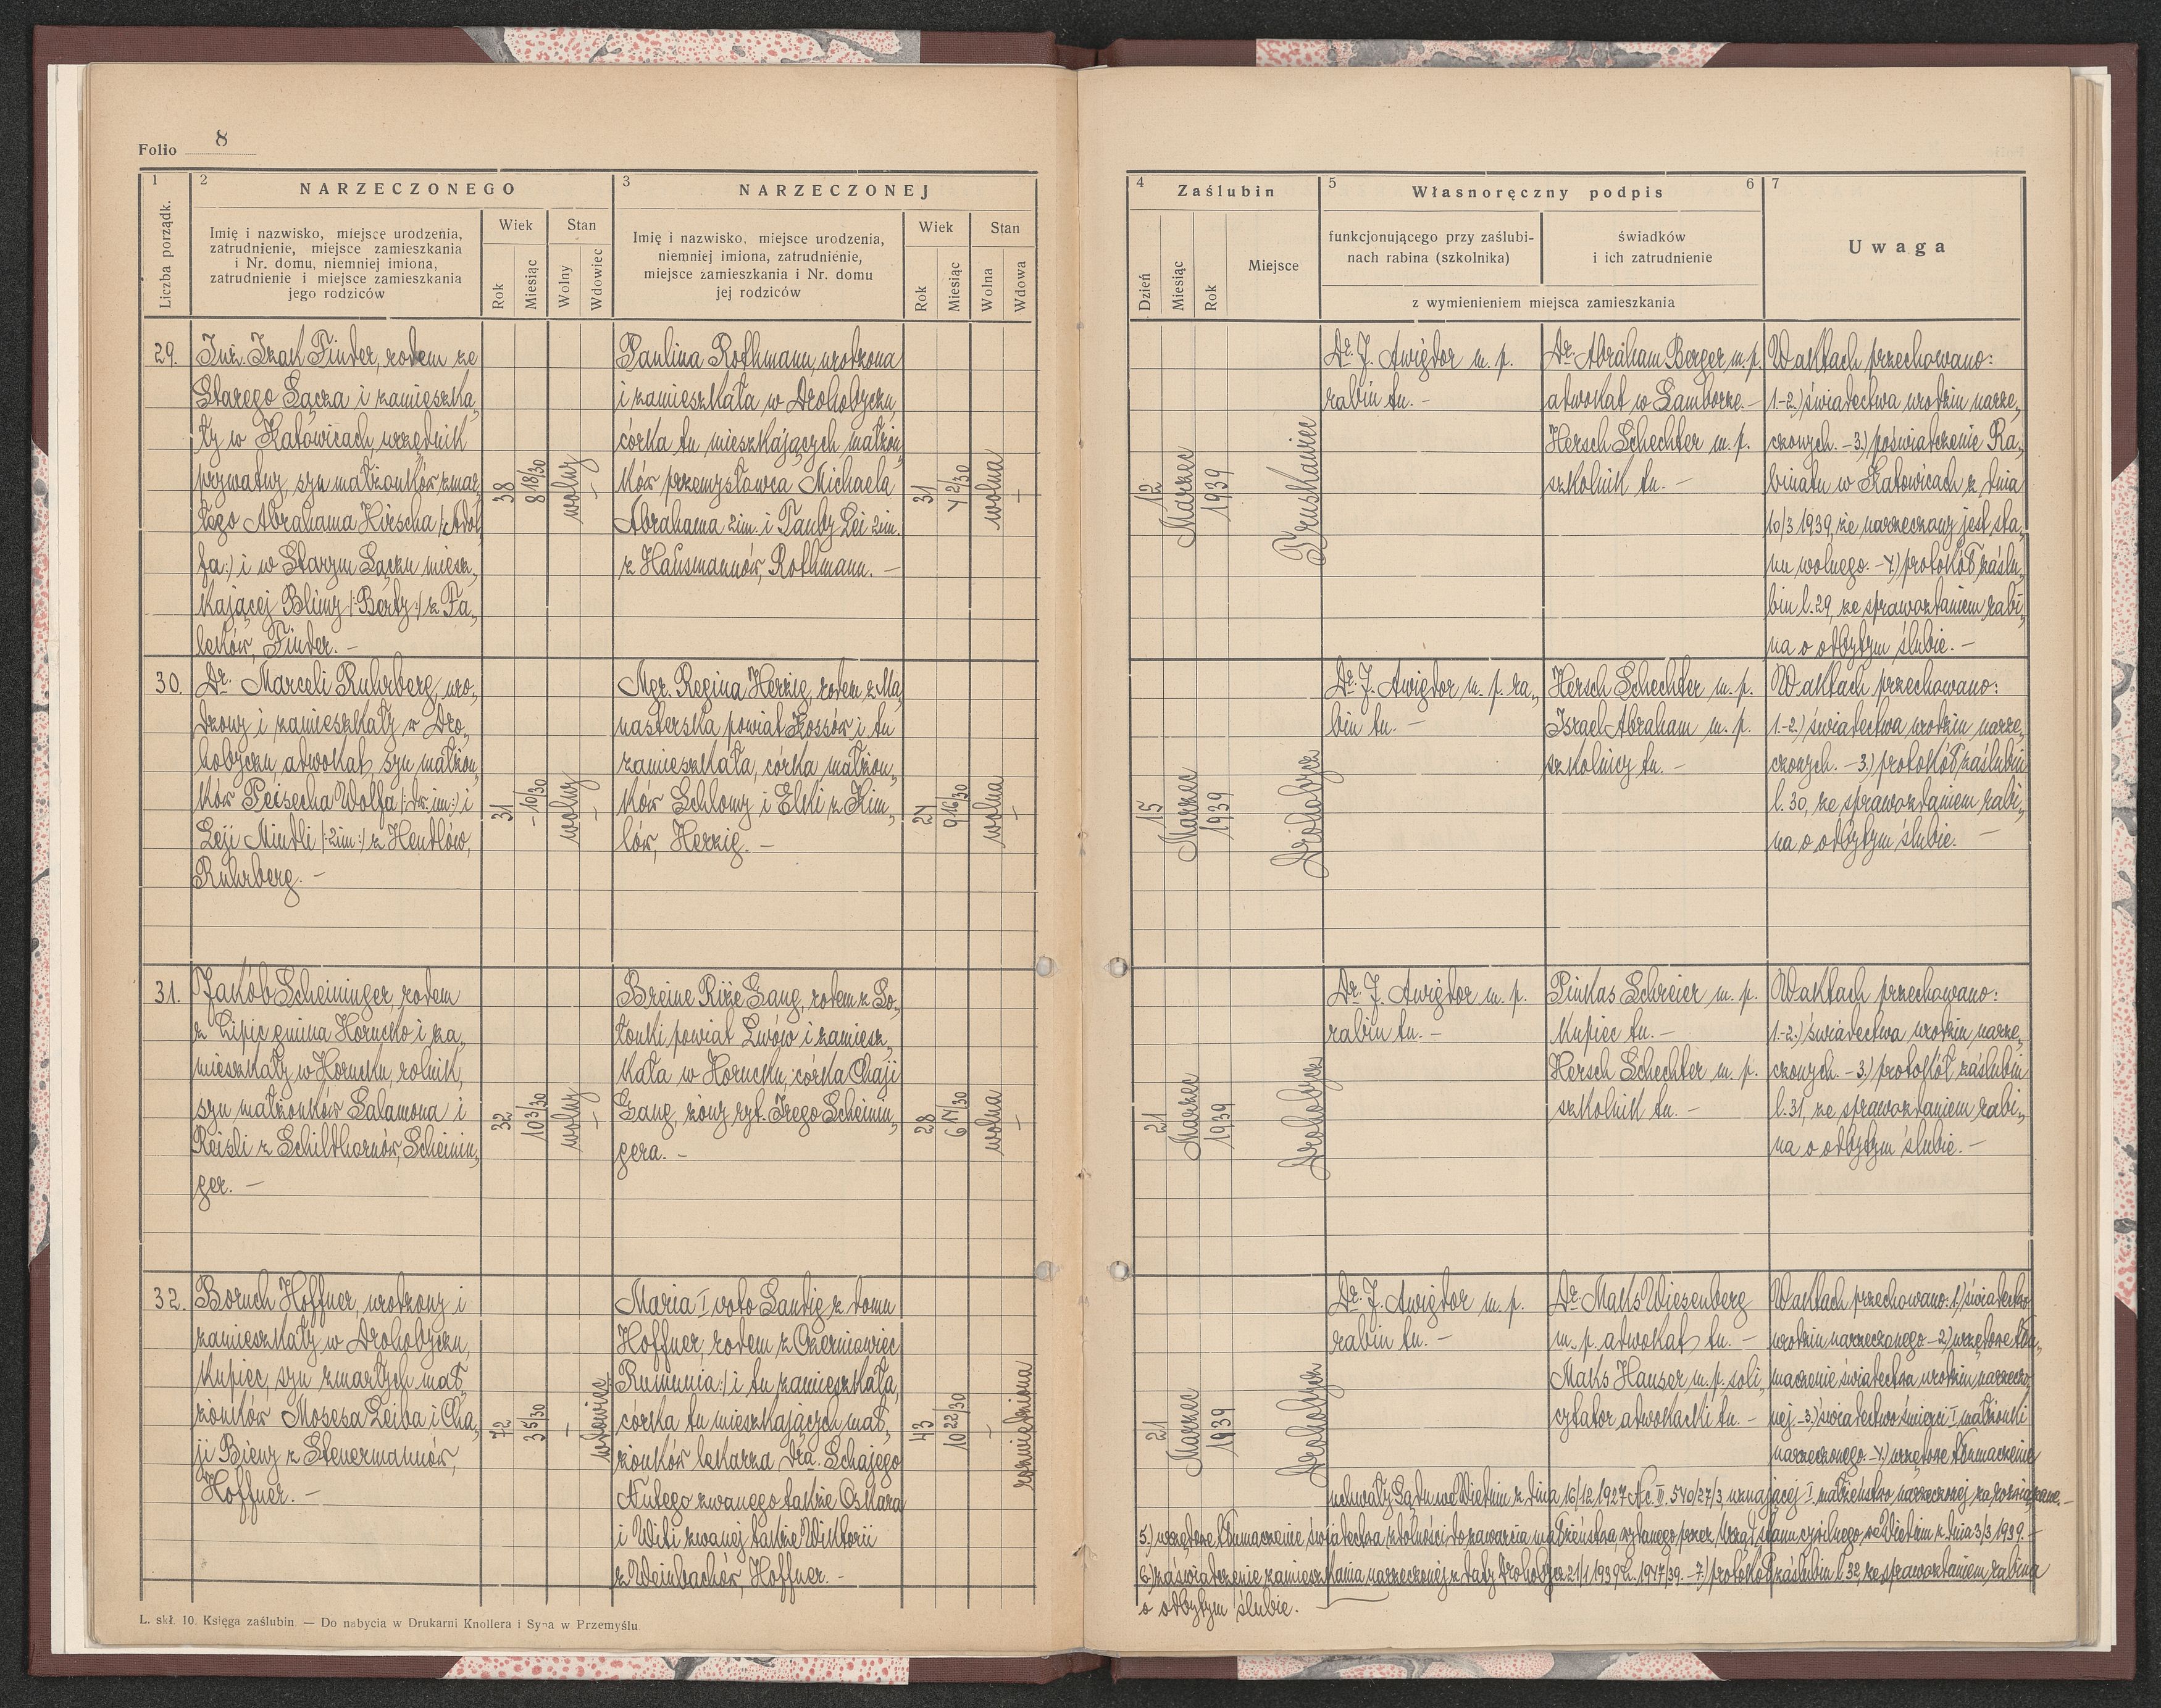 Folio 8
1
2
NARZECZONEGO
3
NARZECZONEJ
Liczba porządk.
Imię i nazwisko, miejsce urodzenia,
zatrudnienie, miejsce zamieszkania
i Nr. domu, niemniej imiona,
zatrudnienie i miejsce zamieszkania
jego rodziców
Wiek
Stan
Rok
Miesiąc
Wolny
Wdowiec
Imię i nazwisko, miejsce urodzenia,
niemniej imiona, zatrudnienie,
miejsce zamieszkania i Nr. domu
jej rodziców
Wiek
Stan
Rok
Miesiąc
Wolna
Wdowa
29.
Inż. Izak Finder, rodem ze
Starego Sącza i zamieszka„
ły w Katowicach, urzędnik
prywatny, syn małżonków zmar„
łego Abrahama Hirscha /:Adol
fa:/ i w Starym Sączu miesz„
kającej Blimy /:Berty:/ z Fa„
leków, Finder. –
38
8 18/30
wolny
–
Paulina Rothmann, urodzona
i zamieszkała w Drohobyczu,
córka tu mieszkających małżon„
ków przemysłowca Michaela
Abrahama 2im. i Tauby Lei 2im.
z Hausmannów, Rothmann. –
31
4 2/30
wolna
–
30.
Dr. Marceli Ruhrberg, uro„
dzony i zamieszkały w Dro„
hobyczu, adwokat, syn małżon„
ków Peisecha Wolfa /:dw. im:/ i
Leji Mindli /:2im:/ z Hendlów,
Ruhrberg. –
31
– 10/30
wolny
–
Mgr. Regina Herzig, rodem z Ma„
nasterska powiat Kossów i tu
zamieszkała, córka małżon„
ków Schlomy i Elki z Kim„
lów, Herzig. –
24
9 16/30
wolna
–
31.
Jakób Scheininger, rodem
z Lipic gmina Horucko i za„
mieszkały w Horucku, rolnik,
syn małżonków Salamona i
Reisli z Schildhornów, Scheinin„
ger. –
32
10 3/30
wolny
–
Breine Rize Gang, rodem z So„
łonki powiat Lwów i zamiesz„
kała w Horucku, córka Chaji
Gang, żony ryt. Izego Scheinin„
gera. –
28
6 17/30
wolna
–
32.
Boruch Hoffner, urodzony i
zamieszkały w Drohobyczu,
kupiec, syn zmarłych mał„
żonków Mosesa Leiba i Cha„
ji Bieny z Steuermannów,
Hoffner. –
72
3 5/30
–
wdowiec
Maria I voto Sandig z domu
Hoffner, rodem z Czerniowiec
/Rumunia:/ i tu zamieszkała,
córka tu mieszkających mał„
żonków lekarza Dra. Schajego
Nutego zwanego także Oskara
i Witi zwanej także Wiktorii
z Weinbachów, Hoffner. –
43
10 22/30
–
rozwiedziona
L. skł. 10. Księga zaślubin. — Do nabycia w Drukarni Knollera i Syna w Przemyślu.
4
Zaślubin
5
Własnoręczny podpis
6
7
Dzień
Miesiąc
Rok
Miejsce
funkcjonującego przy zaślubi-
nach rabina (szkolnika)
świadków
i ich zatrudnienie
z wymienieniem miejsca zamieszkania
Uwaga
12
Marzec
1939
Truskawiec
Dr. J. Awigdor m. p.
rabin tu. –
Dr. Abraham Berger m. p.
adwokat w Samborze. –
Hersch Schechter m. p.
szkolnik tu. –
W aktach przechowano:
1.-2.) świadectwa urodzin narze„
czonych. – 3.) poświadczenie Ra„
binatu w Katowicach z dnia
10/3 1939, że narzeczony jest sta„
nu wolnego. – 4.) protokół zaślu„
bin l. 29, ze sprawozdaniem rabi„
na o odbytym ślubie. –
15
Marzec
1939
Drohobycz
Dr. J. Awigdor m. p. ra„
bin tu. –
Hersch Schechter m. p.
Israel Abraham m. p.
szkolnicy tu. –
W aktach przechowano:
1.-2.) świadectwa urodzin narze„
czonych. – 3.) protokół zaślubin
l. 30, ze sprawozdaniem rabi„
na o odbytym ślubie. –
21
Marzec
1939
Drohobycz
Dr. J. Awigdor m. p.
rabin tu. –
Pinkas Schreier m. p.
kupiec tu. –
Hersch Schechter m. p.
szkolnik tu. –
W aktach przechowano:
1.-2.) świadectwa urodzin narze„
czonych. – 3.) protokół zaślubin
l. 31, ze sprawozdaniem rabi„
na o odbytym ślubie. –
21
Marzec
1939
Drohobycz
Dr. J. Awigdor m. p.
rabin tu. –
Dr. Maks Wiesenberg
m. p. adwokat tu. –
Maks Hauser m. p. soli„
cytator adwokacki tu. –
W aktach przechowano: 1.) świadectwo
urodzin narzeczonego – 2.) urzędowe tłu„
maczenie świadectwa urodzin narzeczo„
nej. – 3.) świadectwo śmierci I małżonki
narzeczonego. – 4.) urzędowe tłumaczenie
uchwały Sądu we Wiedniu z dnia 16/12 1927 Nc. II. 540/27/3, uznającej I małżeństwo narzeczonej za rozwiązane. –
5.) urzędowe tłumaczenie świadectwa zdolności do zawarcia małżeństwa, wydanego przez Urząd stanu cywilnego we Wiedniu z dnia 3/3 1939. –
6.) zaświadczenie zamieszkania narzeczonej z daty Drohobycz 21/1 1939 L. 1947/39. – 7.) protokół zaślubin l. 32, ze sprawozdaniem rabina
o odbytym ślubie. –